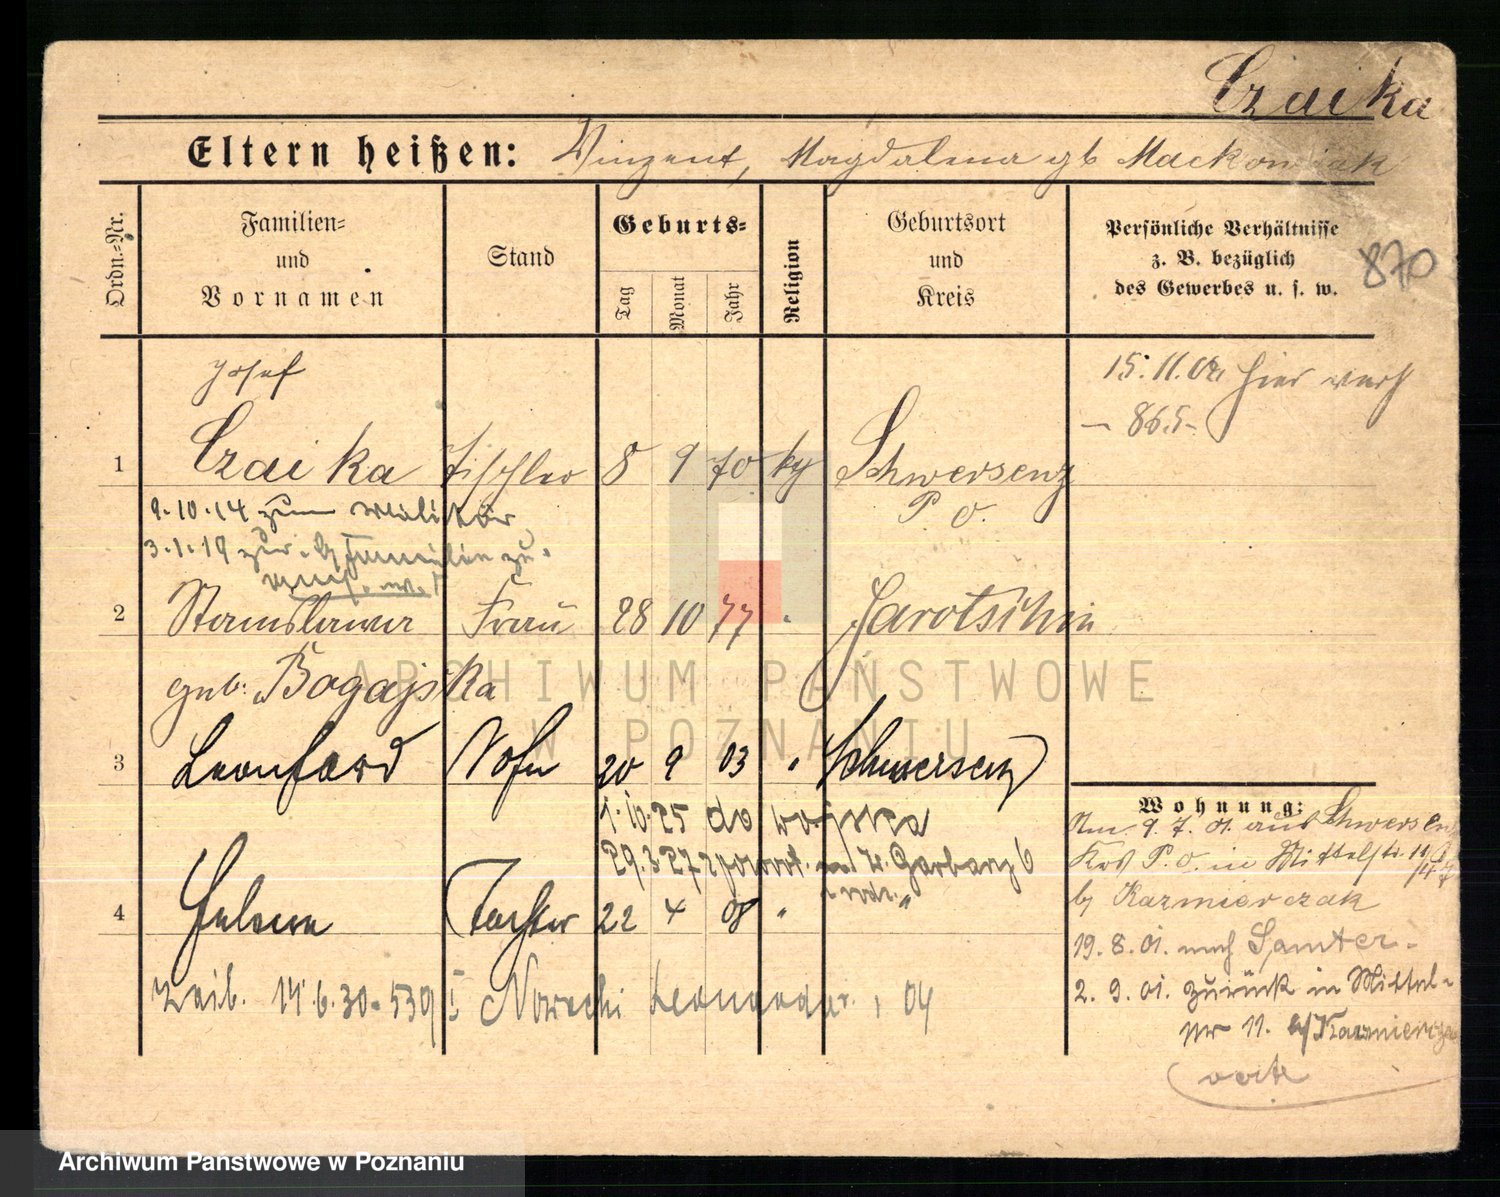 Czaika
Eltern heißen: Vinzent, Magdalena gb Mackowiak
Ordn.-Nr.
Familien-
und
Vornamen
Stand
Geburts-
Tag
Monat
Jahr
Religion
Geburtsort
und
Kreis
Persönliche Verhältnisse
z. B. bezüglich
des Gewerbes u. s. w.
870
Josef
15.11.02 hier
– 865 –
1 Czaika Tischler 8 9 70 kt Schwersenz
P. O.
9.10.14 zum Militär
3.1.19 zur Familie zu-
2 Stanislawa Frau 28 10 77 " Jarotschin
geb. Bogajska
3 Leonhard Sohn 20 9 03 " Schwersenz
1.10.25 do wojska
29.3.27 z powrot. W. Garbary 6
4 Helene Tochter 22 4 08 "
14.6.30 - 539 I
04
Wohnung:
Am 9.7.01 aus Schwersenz
Krs P. O. in Mittelstr. 11
b/ Kazmierczak
19.8.01. nach Samter.
2.9.01. zurück in Mittel-
Nr 11. b/Kazmiercza
ARCHIWUM PAŃSTWOWE
W POZNANIU
Archiwum Państwowe w Poznaniu